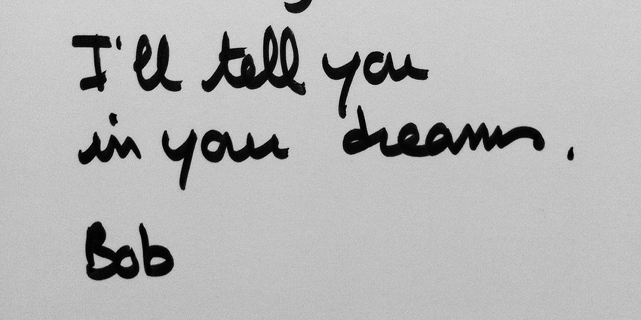 I'll tell you
in your dreams.
Bob